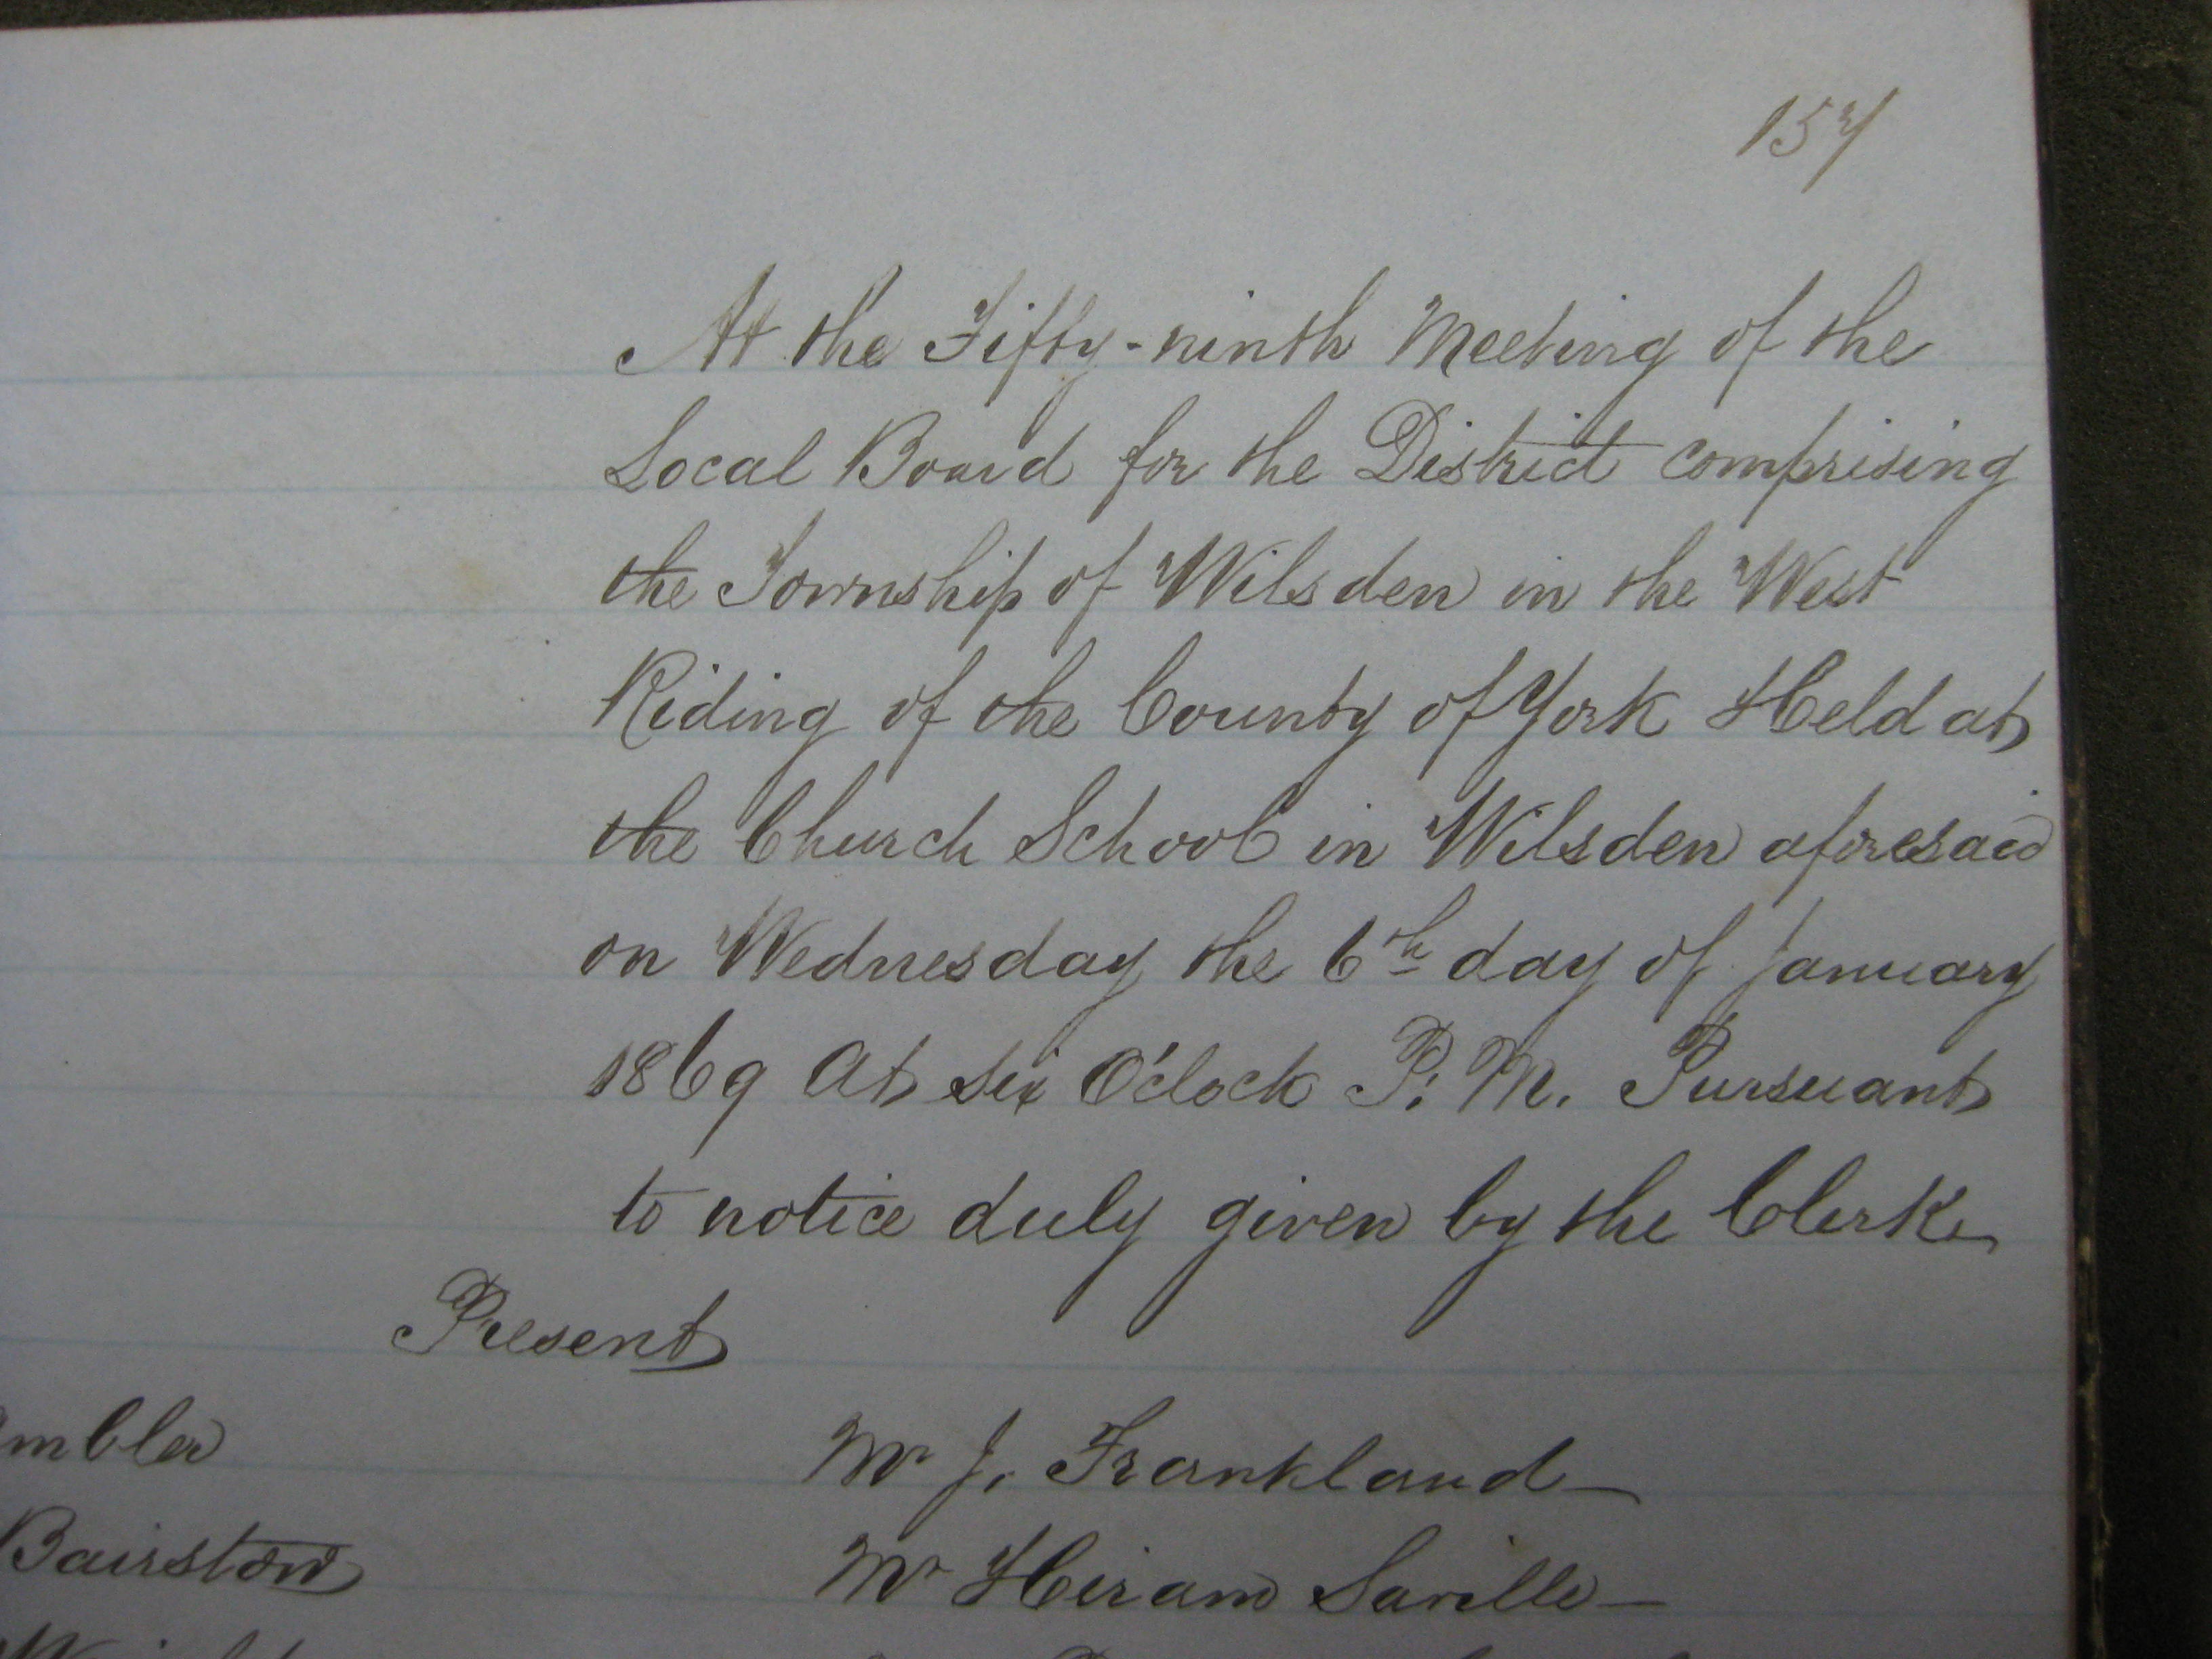 157
At the Fifty-ninth Meeting of the
Local Board for the District comprising
the Township of Wilsden in the West
Riding of the County of York Held at
the Church School in Wilsden aforesaid
on Wednesday the 6th day of January
1869 At six O'clock P. M. Pursuant
to notice duly given by the Clerk
Present
mbler
Mr J. Frankland
Bairstow
Mr Hiram Saville